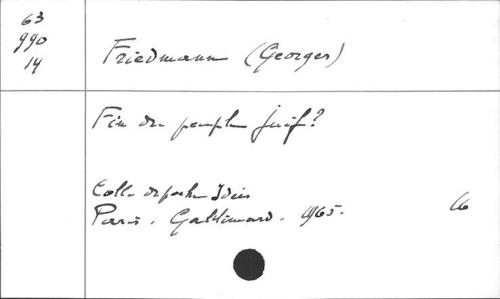 63
990
14
Friedmann (Georges)
Fin du peuple juif?
Coll. de poche Idées
Paris. Gallimard. 1965.